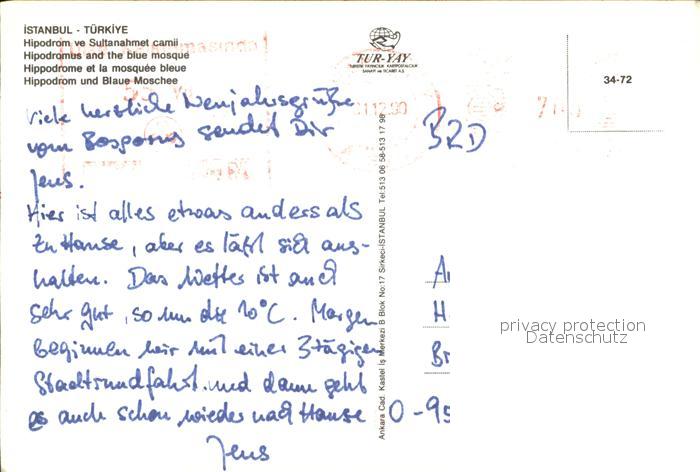 İSTANBUL - TÜRKİYE
Hipodrom ve Sultanahmet camii
Hipodromus and the blue mosque
Hippodrome et la mosquée bleue
Hippodrom und Blaue Moschee
TUR-YAY
TÜRKİYE YAYINCILIK KARTPOSTALCILIK
SANAYİ ve TİCARET A.S.
34-72
Viele herzliche Neujahrsgrüße
vom Bosporus sendet Dir
Jens.
Hier ist alles etwas anders als
zu Hause, aber es läßt sich aus-
halten. Das Wetter ist auch
sehr gut, so um die 10°C. Morgen
beginnen wir mit einer 3tägigen
Stadtrundfahrt und dann geht
es auch schon wieder nach Hause
Jens
BRD
A
H
Br
O-95
Ankara Cad. Kastel İş Merkezi B Blok No:17 Sirkeci-İSTANBUL Tel:513 06 58-513 17 98
privacy protection
Datenschutz